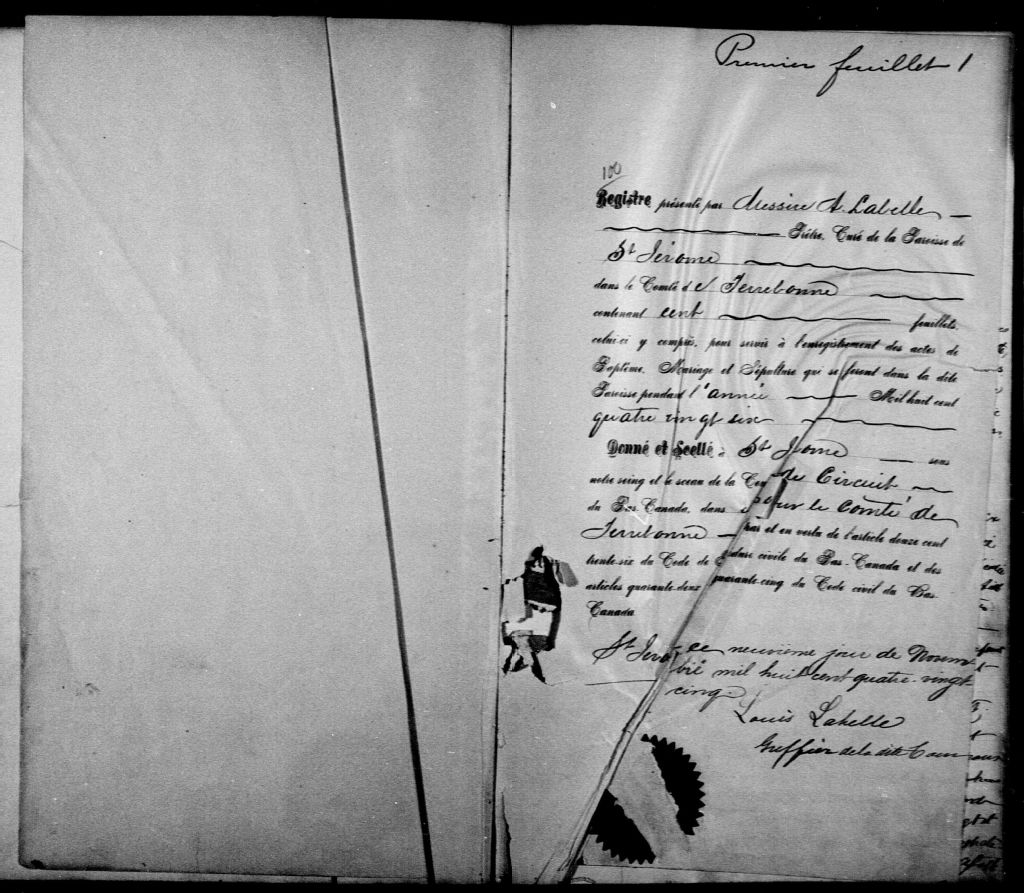 Premier feuillet 1
100
Registre présenté par Messire A. Labelle
Prêtre, Curé de la Paroisse de
St Jérome
dans le Comté de Terrebonne
contenant cent feuillets,
celui-ci y compris, pour servir à l'enregistrement des actes de
Baptême, Mariage et Sépulture qui se feront dans la dite
Paroisse pendant l'année Mil huit cent
quatre vingt six
Donné et Scellé à St Jome sous
notre seing et le sceau de la Cou de Circuit
du Bas-Canada, dans pour le comté de
Terrebonne et en vertu de l'article douze cent
trente-six du Code de édure civile du Bas-Canada et des
articles quarante-deux quarante-cinq du Code civil du Bas-
Canada
St Jero ce neuvième jour de Novem-
bre mil huit cent quatre-vingt
cinq
Louis Labelle
Greffier de la dite Cour